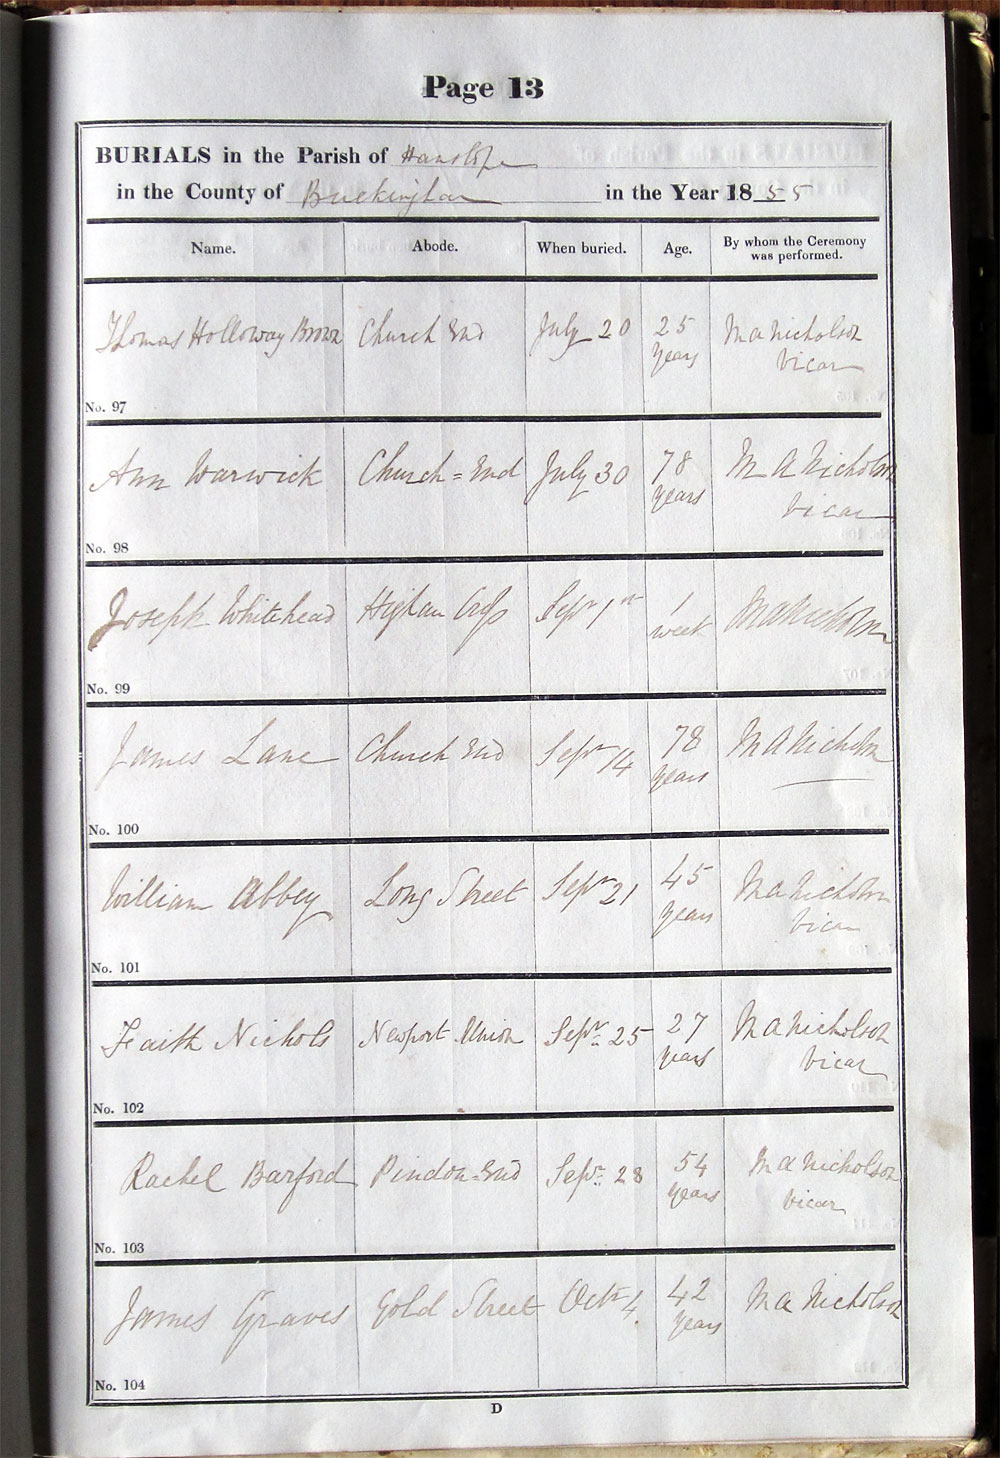 Page 13
BURIALS in the Parish of Hanslope
in the County of Buckingham in the Year 1855
Name. Abode. When buried. Age. By whom the Ceremony was performed.
Thomas Holloway Brown Church End July 20 25 years M A Nicholson Vicar
No. 97
Ann Warwick Church = End July 30 78 years M A Nicholson Vicar
No. 98
Joseph Whitehead Higham Cross Sepr 1st 1 week M A Nicholson
No. 99
James Lane Church End Sepr 14 78 years M A Nicholson
No. 100
William Abbey Long Street Sepr 21 45 years M A Nicholson Vicar
No. 101
Faith Nichols Newport Union Sepr 25 27 years M A Nicholson Vicar
No. 102
Rachel Barford Pindon End Sepr 28 54 years M A Nicholson Vicar
No. 103
James Graves Gold Street Octr 4 42 years M A Nicholson
No. 104
D